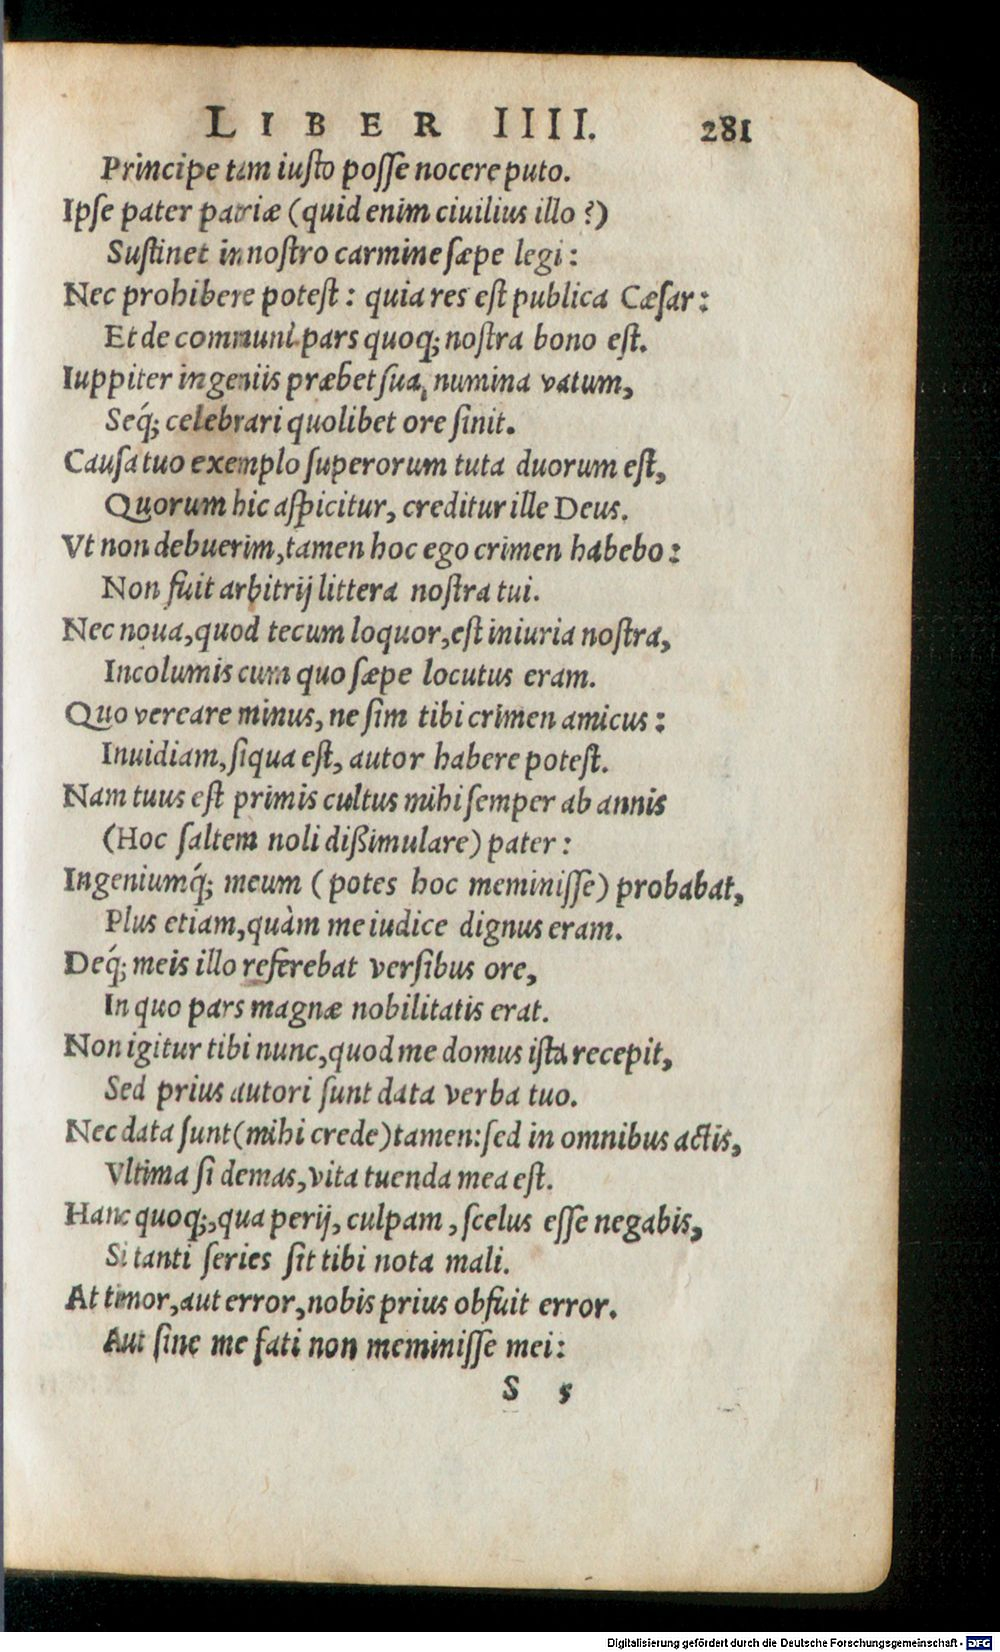 LIBER IIII. 281
Principe tam iuſto poſſe nocere puto.
Ipſe pater patriæ (quid enim ciuilius illo?)
Suſtinet in noſtro carmine ſæpe legi:
Nec prohibere poteſt: quia res eſt publica Cæſar:
Et de communi pars quoq; noſtra bono eſt.
Iuppiter ingeniis præbet ſua numina vatum,
Seq́; celebrari quolibet ore ſinit.
Cauſa tuo exemplo ſuperorum tuta duorum eſt,
Quorum hic aſpicitur, creditur ille Deus.
Vt non debuerim, tamen hoc ego crimen habebo:
Non fuit arbitrij littera noſtra tui.
Nec noua, quod tecum loquor, eſt iniuria noſtra,
Incolumis cum quo ſæpe locutus eram.
Quo vereare minus, ne ſim tibi crimen amicus:
Inuidiam, ſiqua eſt, autor habere poteſt.
Nam tuus eſt primis cultus mihi ſemper ab annis
(Hoc ſaltem noli dißimulare) pater:
Ingeniumq́; meum (potes hoc meminiſſe) probabat,
Plus etiam, quàm me iudice dignus eram.
Deq́; meis illo referebat verſibus ore,
In quo pars magnæ nobilitatis erat.
Non igitur tibi nunc, quod me domus iſta recepit,
Sed prius autori ſunt data verba tuo.
Nec data ſunt (mihi crede) tamen: ſed in omnibus actis,
Vltima ſi demas, vita tuenda mea eſt.
Hanc quoq;, qua perij, culpam, ſcelus eſſe negabis,
Si tanti ſeries ſit tibi nota mali.
At timor, aut error, nobis prius obfuit error.
Aut ſine me fati non meminiſſe mei:
S 5
Digitalisierung gefördert durch die Deutsche Forschungsgemeinschaft - DFG